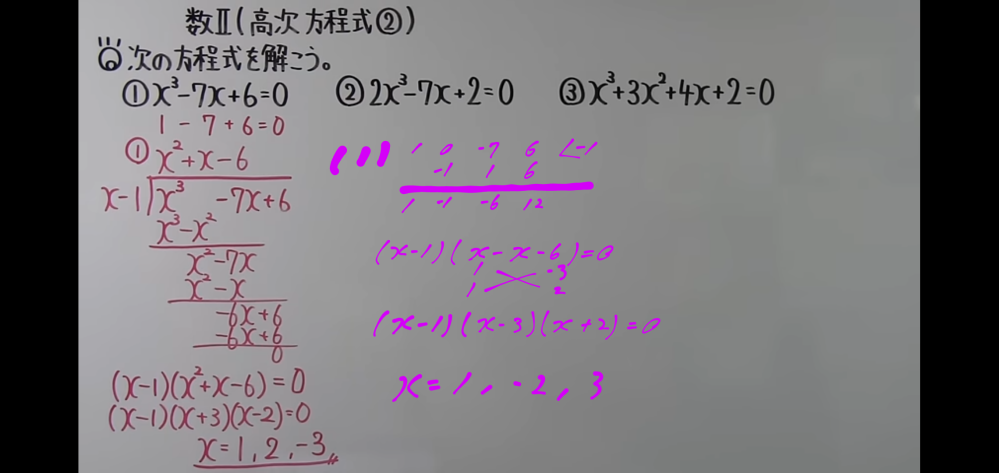 数Ⅱ(高次方程式②)
次の方程式を解こう。
①x³-7x+6=0 ②2x³-7x+2=0 ③x³+3x²+4x+2=0
1-7+6=0
① x²+x-6
x-1)x³ -7x+6
x³-x²
x²-7x
x²-x
-6x+6
-6x+6
0
(x-1)(x²+x-6)=0
(x-1)(x+3)(x-2)=0
x=1,2,-3
(1)
1 0 -7 6 ∠-1
-1 1 6
1 -1 -6 12
(x-1)(x-x-6)=0
1 -3
1 2
(x-1)(x-3)(x+2)=0
x=1,-2,3